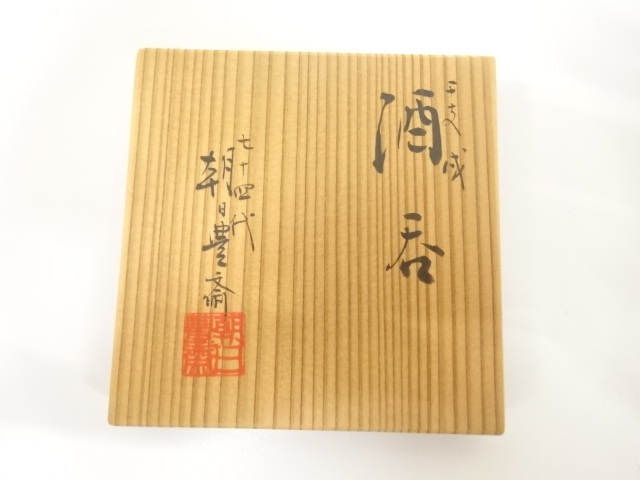 干支戌
酒呑
七十四代
朝日豊斎
朝日